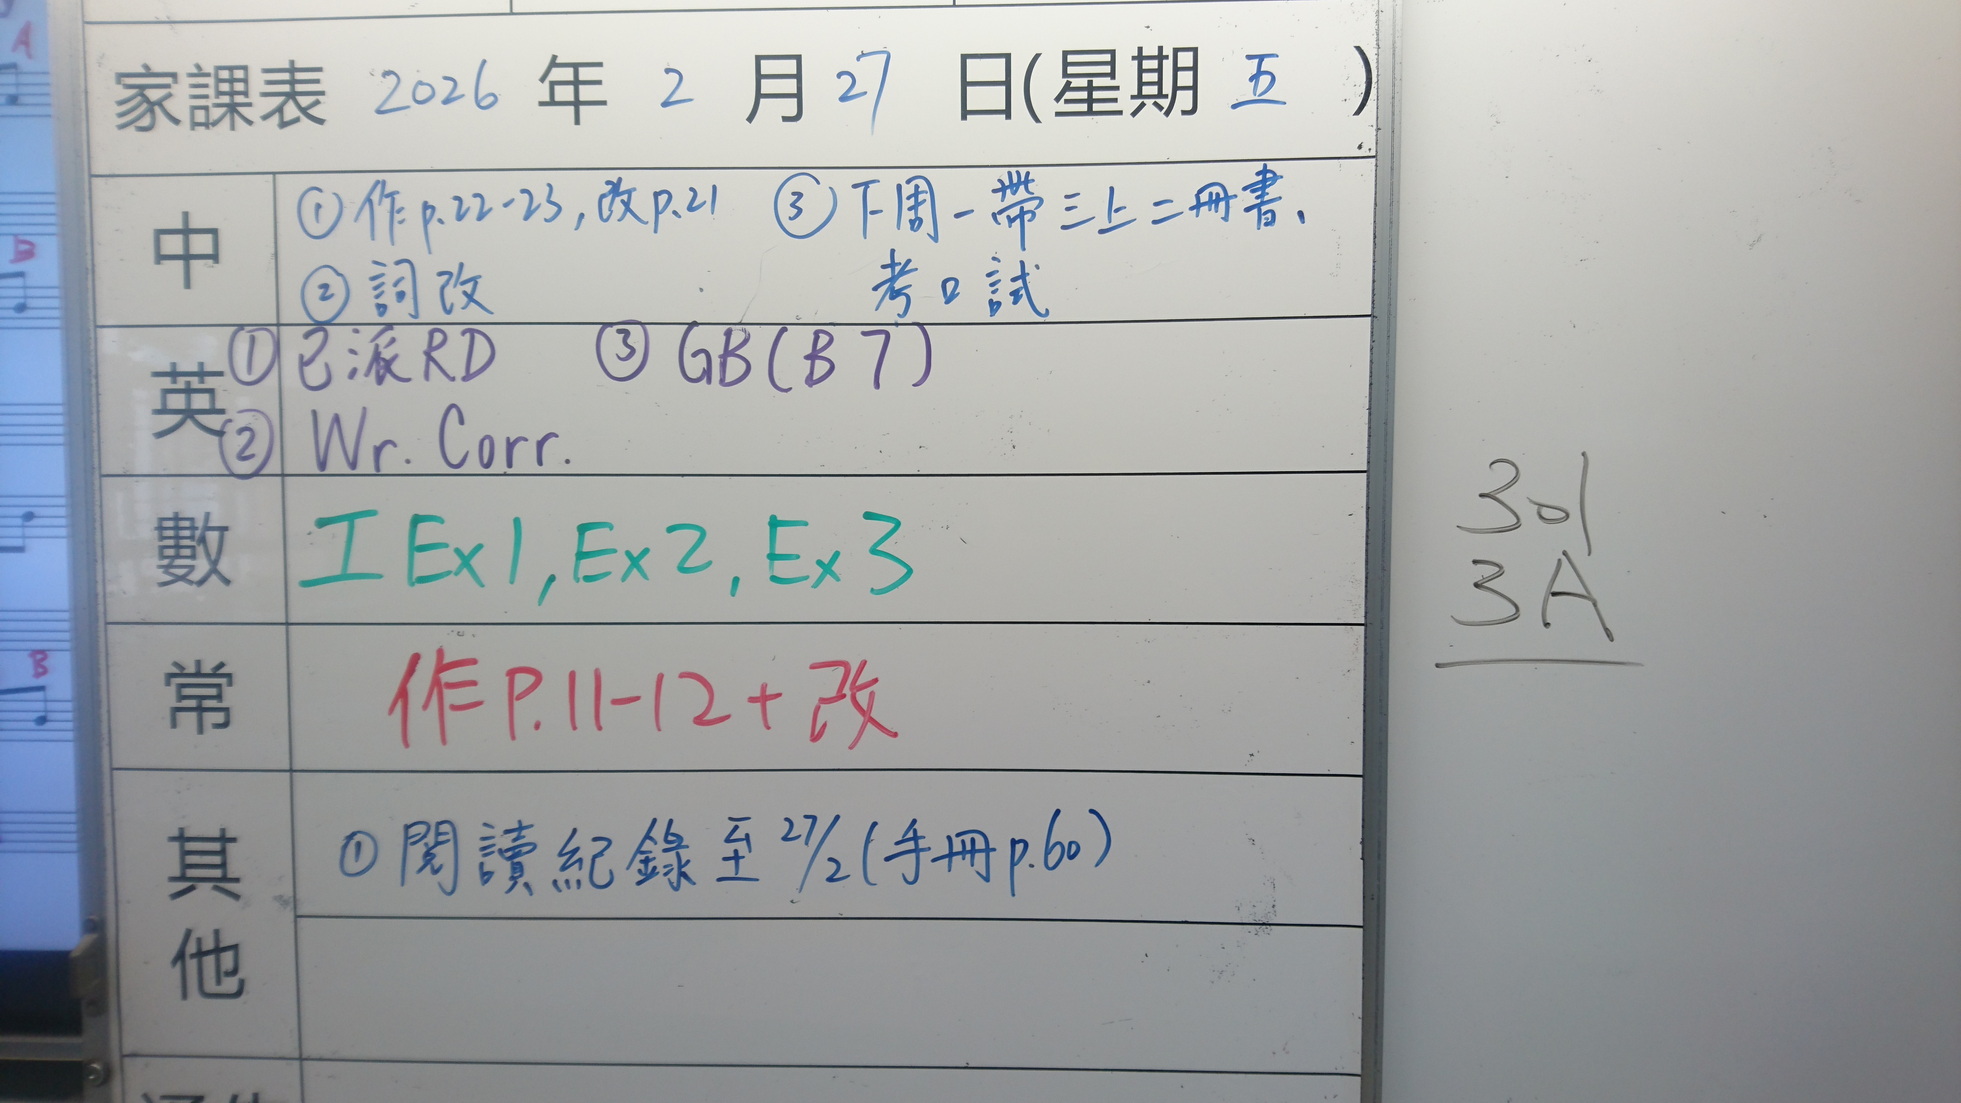 家課表 2026 年 2 月 27 日(星期 五 )
中
① 作 p.22-23, 改 p.21 ③ 下周一帶三上二冊書、
② 詞改 考口試
英
① 已派RD ③ GB(B 7)
② Wr. Corr.
數
工 Ex1, Ex2, Ex3
常
作 P.11-12 + 改
其他
① 閱讀紀錄至 27/2 (手冊 p.60)
301
3A
A
B
B